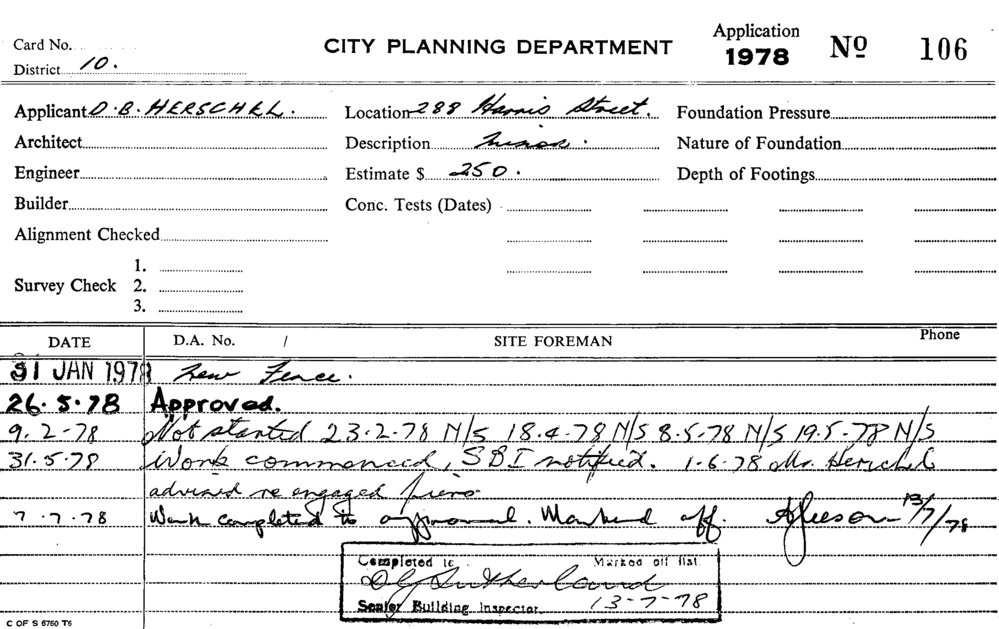 Application
Card No. CITY PLANNING DEPARTMENT 1978 No 106
District 10.
Applicant D. B. HERSCHEL. Location 288 Harris Street. Foundation Pressure
Architect Description Minor. Nature of Foundation
Engineer Estimate $ 250. Depth of Footings
Builder Conc. Tests (Dates)
Alignment Checked
1.
Survey Check 2.
3.
DATE D.A. No. / SITE FOREMAN Phone
31 JAN 1978 New Fence.
26.5.78 Approved.
9.2-78 Not started 23-2-78 N/S 18.4-78 N/S 8.5-78 N/S 19.5-78 N/S
31.5.78 Work commenced, SBI notified. 1-6.78 Mr. Herschel
advised re engaged piers
7.7.78 Work completed to approval. Marked off. 13/7/78
Completed to Marked off list
Senior Building Inspector 13-7-78
C OF S 6760 T6